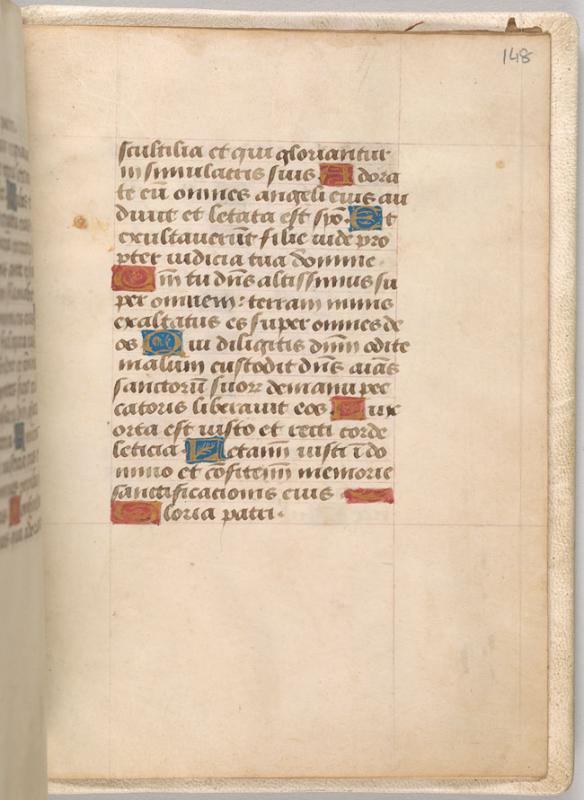 148
scultilia et qui gloriantur
in simulacris suis Adora
te eū omnes angeli eius au
diuit et letata est syō. Et
exultauerūt filie iude pro
pter iudicia tua domine.
Qm̄ tu dn̄s altissimus su
per omnem: terram nimis
exaltatus es super omnes de
os Qui diligitis dn̄m odite
malum custodit dn̄s aīas
sanctorū suorꝝ de manu pec
catoris liberauit eos Lux
orta est iusto et recti corde
leticia. Letami iusti ī do
mino et cōfitemī memorie
sanctificacionis eius
Gloria patri.